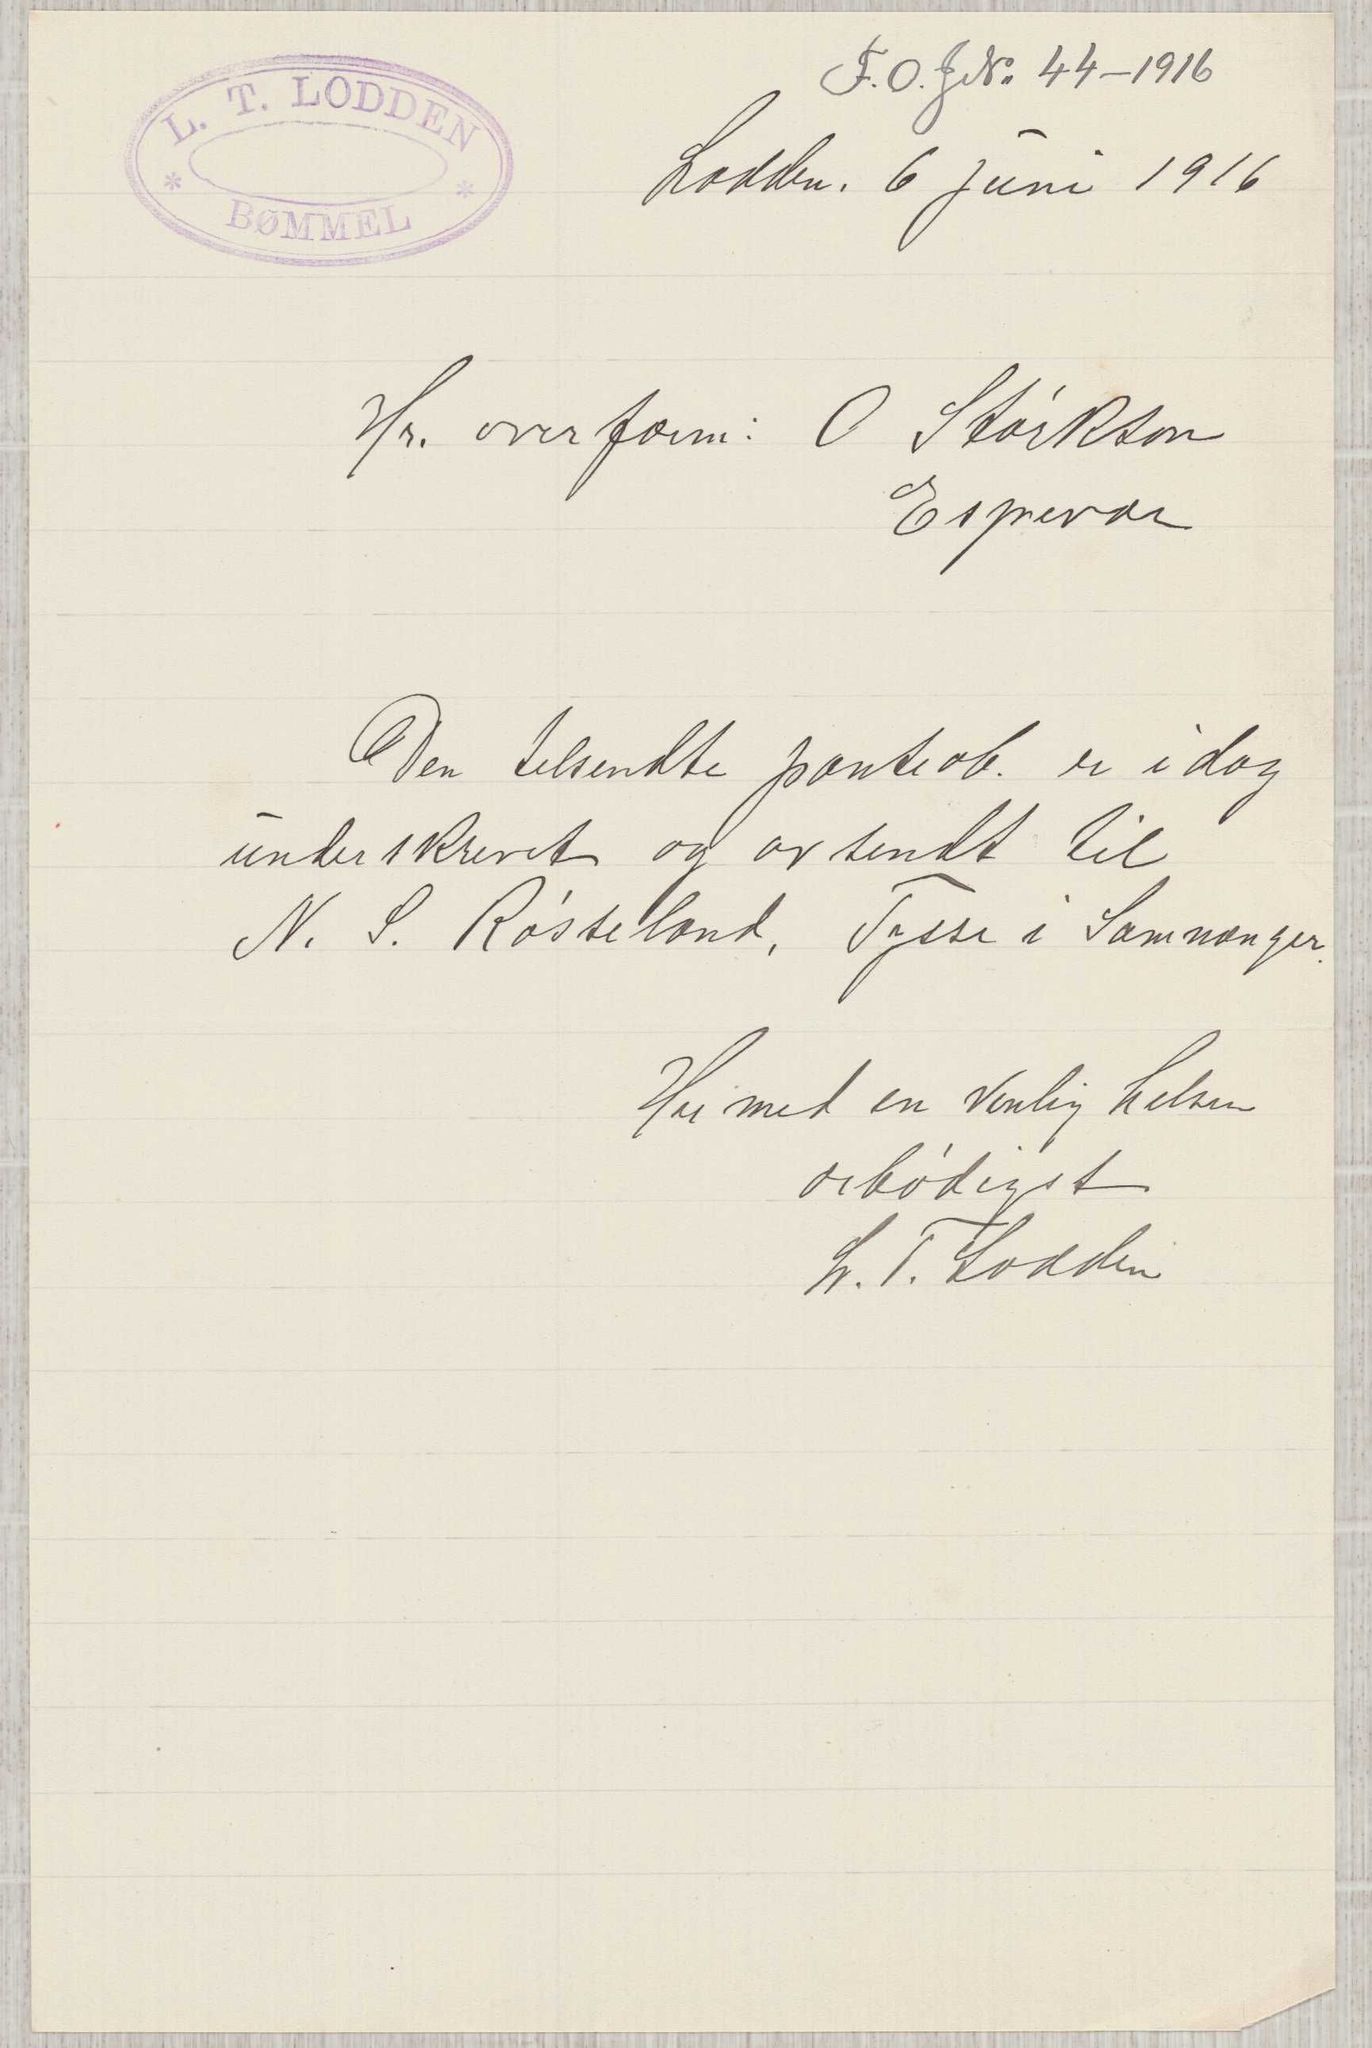 L. T. LODDEN
* *
BØMMEL
F.O. J.No. 44-1916
Lodden. 6 juni 1916
Hr. overform: O Størkson
Espevær
Den tilsendte panteob. er idag
underskrevet og avsendt til
N. S. Røsseland, Tysse i Samnanger.
Her med en venlig helsen
ærbødigst
L. T. Lodden